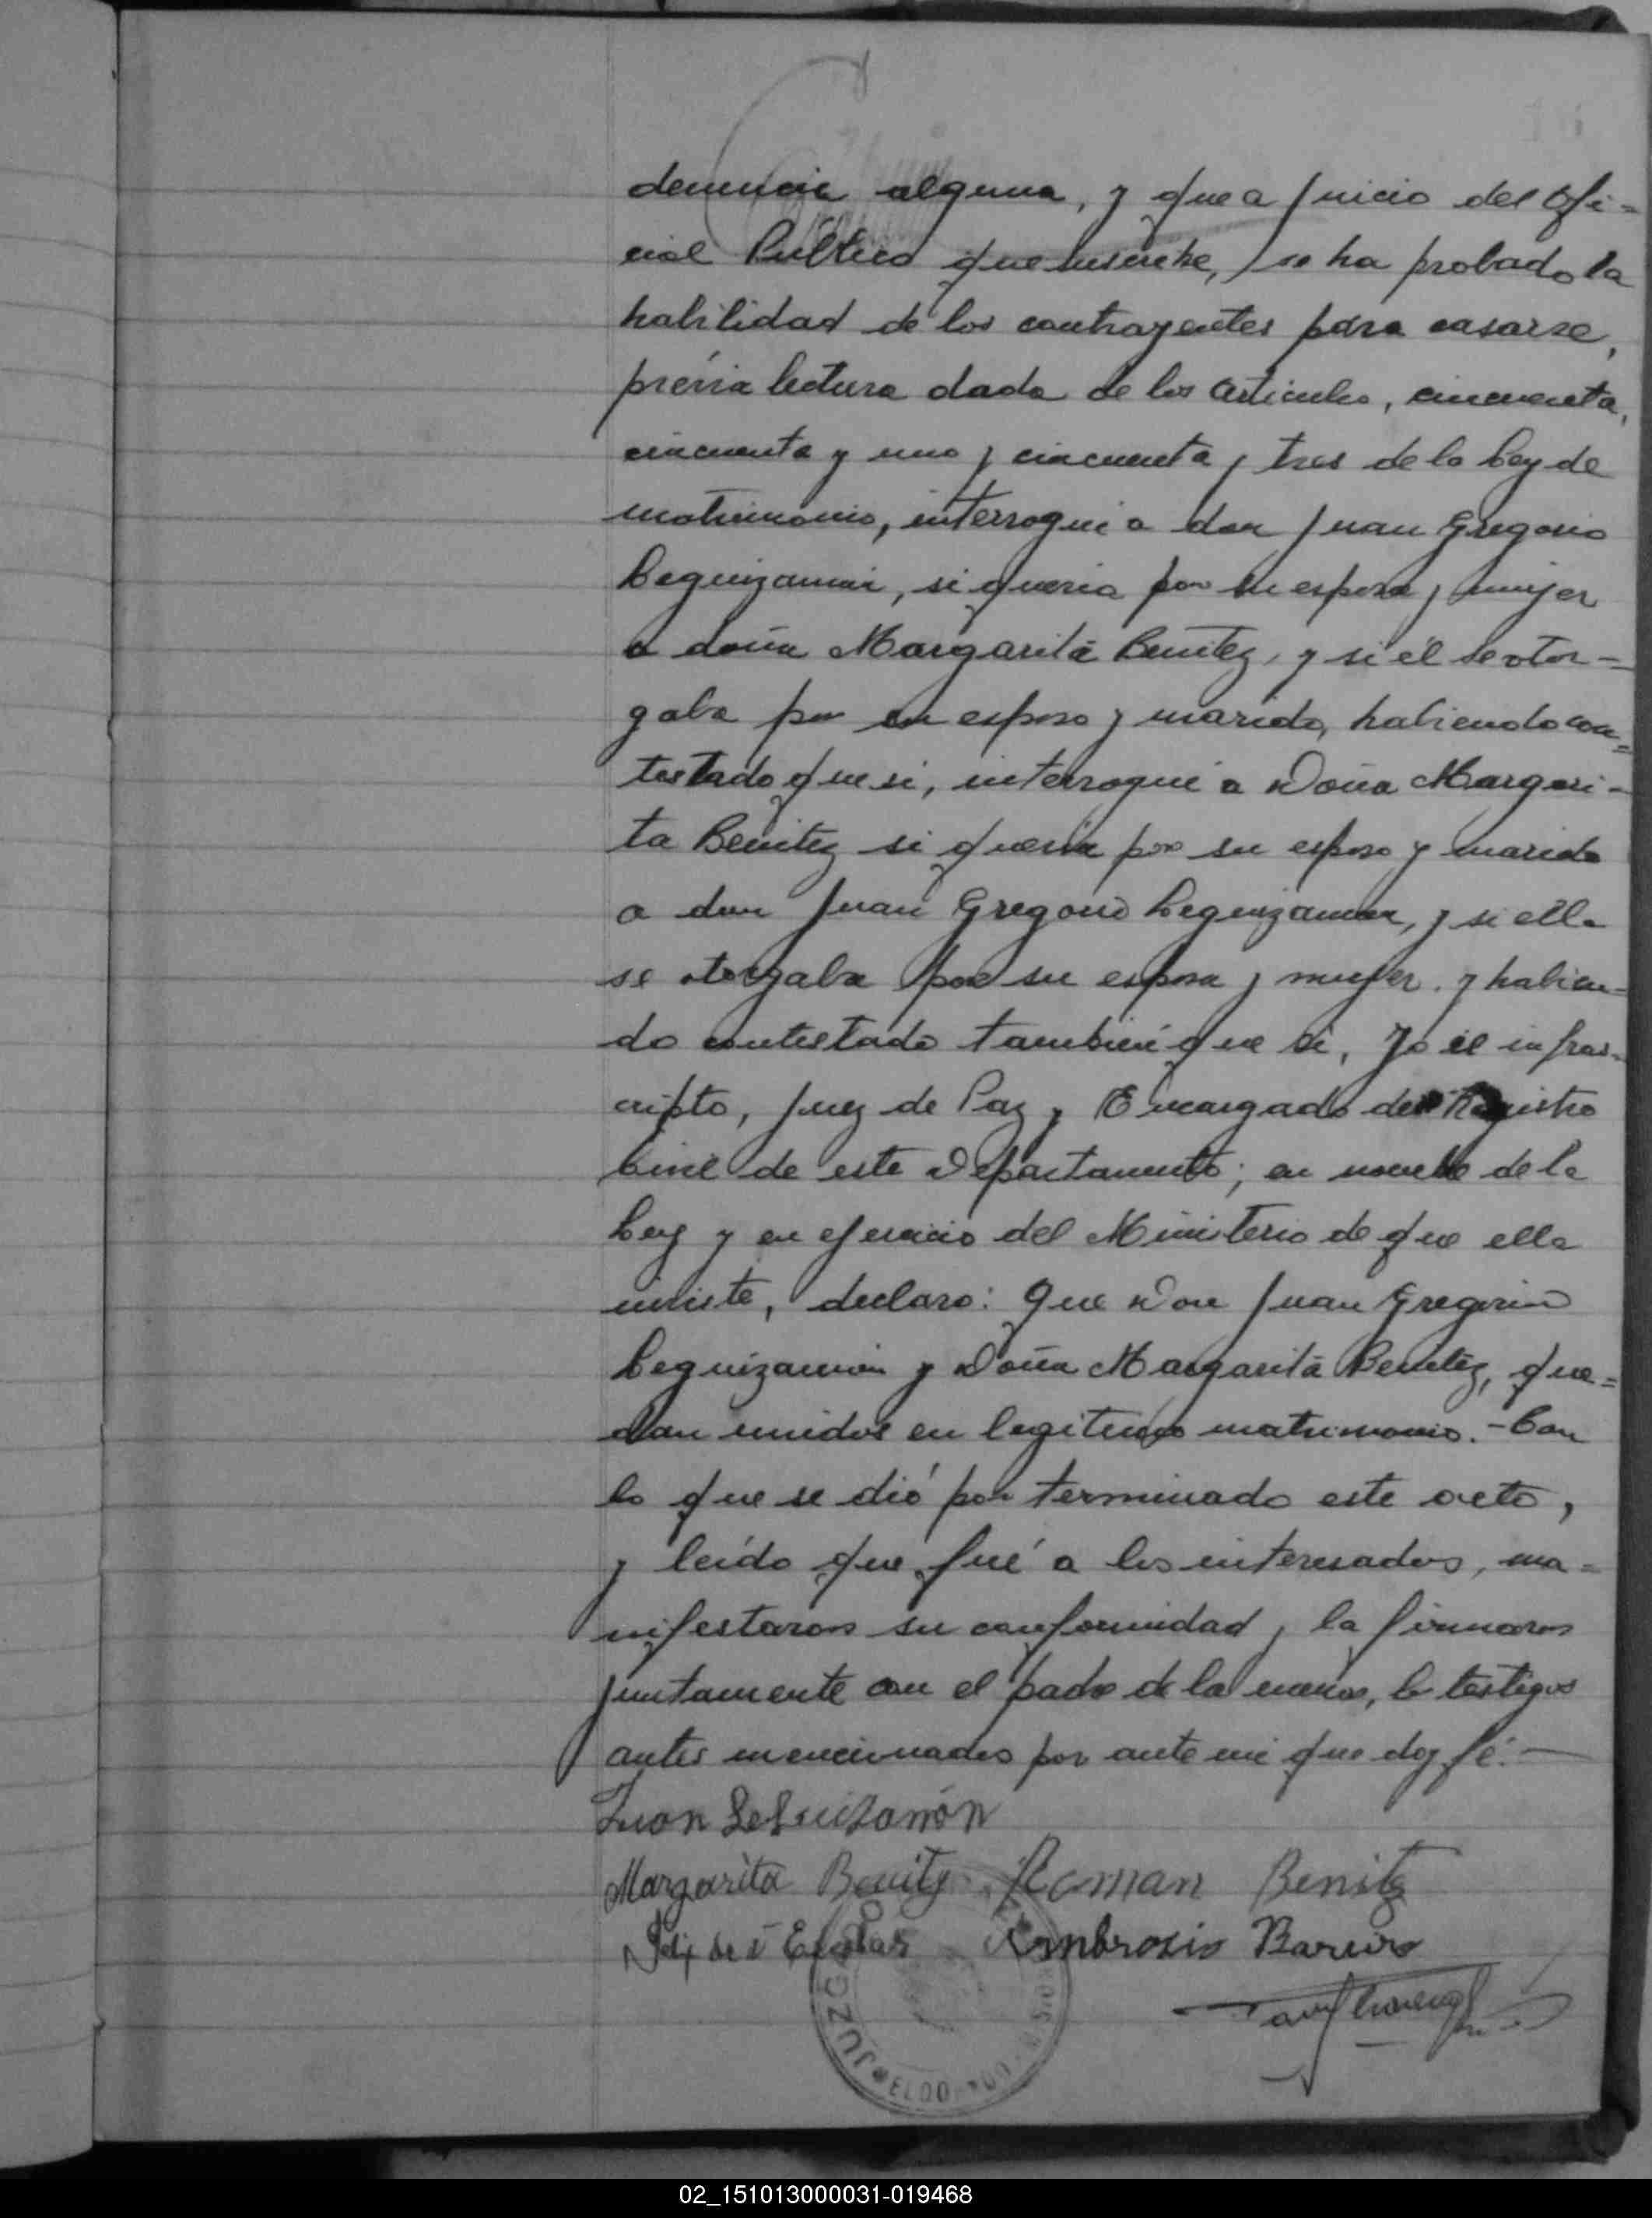 denuncia alguna, y que a juicio del Ofi=
cial Público que suscribe, se ha probado la
habilidad de los contrayentes para casarse,
prévia lectura dada de los articulos, cincuenta,
cincuenta y uno y cincuenta y tres de la Ley de
matrimonio, interrogué a don Juan Gregorio
Leguizamón, si queria por su esposa y mujer
a doña Margarita Benitez, y si él se otor=
gaba por su esposo y marido, habiendo con=
testado que si, interrogué a Doña Margari-
ta Benitez si queria por su esposo y marido
a don Juan Gregorio Leguizamón, y si ella
se otorgaba por su esposa y mujer. y habien=
do contestado también que si, Yo el infras-
cripto, Juez de Paz y Encargado del Registro
Civil de este Departamento; en nombre de la
Ley y en ejercicio del Ministerio de que ella
inviste, declaro: Que Don Juan Gregorio
Leguizamón y Doña Margarita Benitez, que=
dan unidos en legitimo matrimonio. - Con
lo que se dió por terminado este acto,
y leído que fué a los interesados, ma=
nifestaron su conformidad y la firmaron
juntamente con el padre de la menor, los testigos
antes mencionados por ante mi que doy fé. -
Juan Leguizamón
Margarita Benitez Roman Benitez
Ambrosio Bareiro
JUZGADO